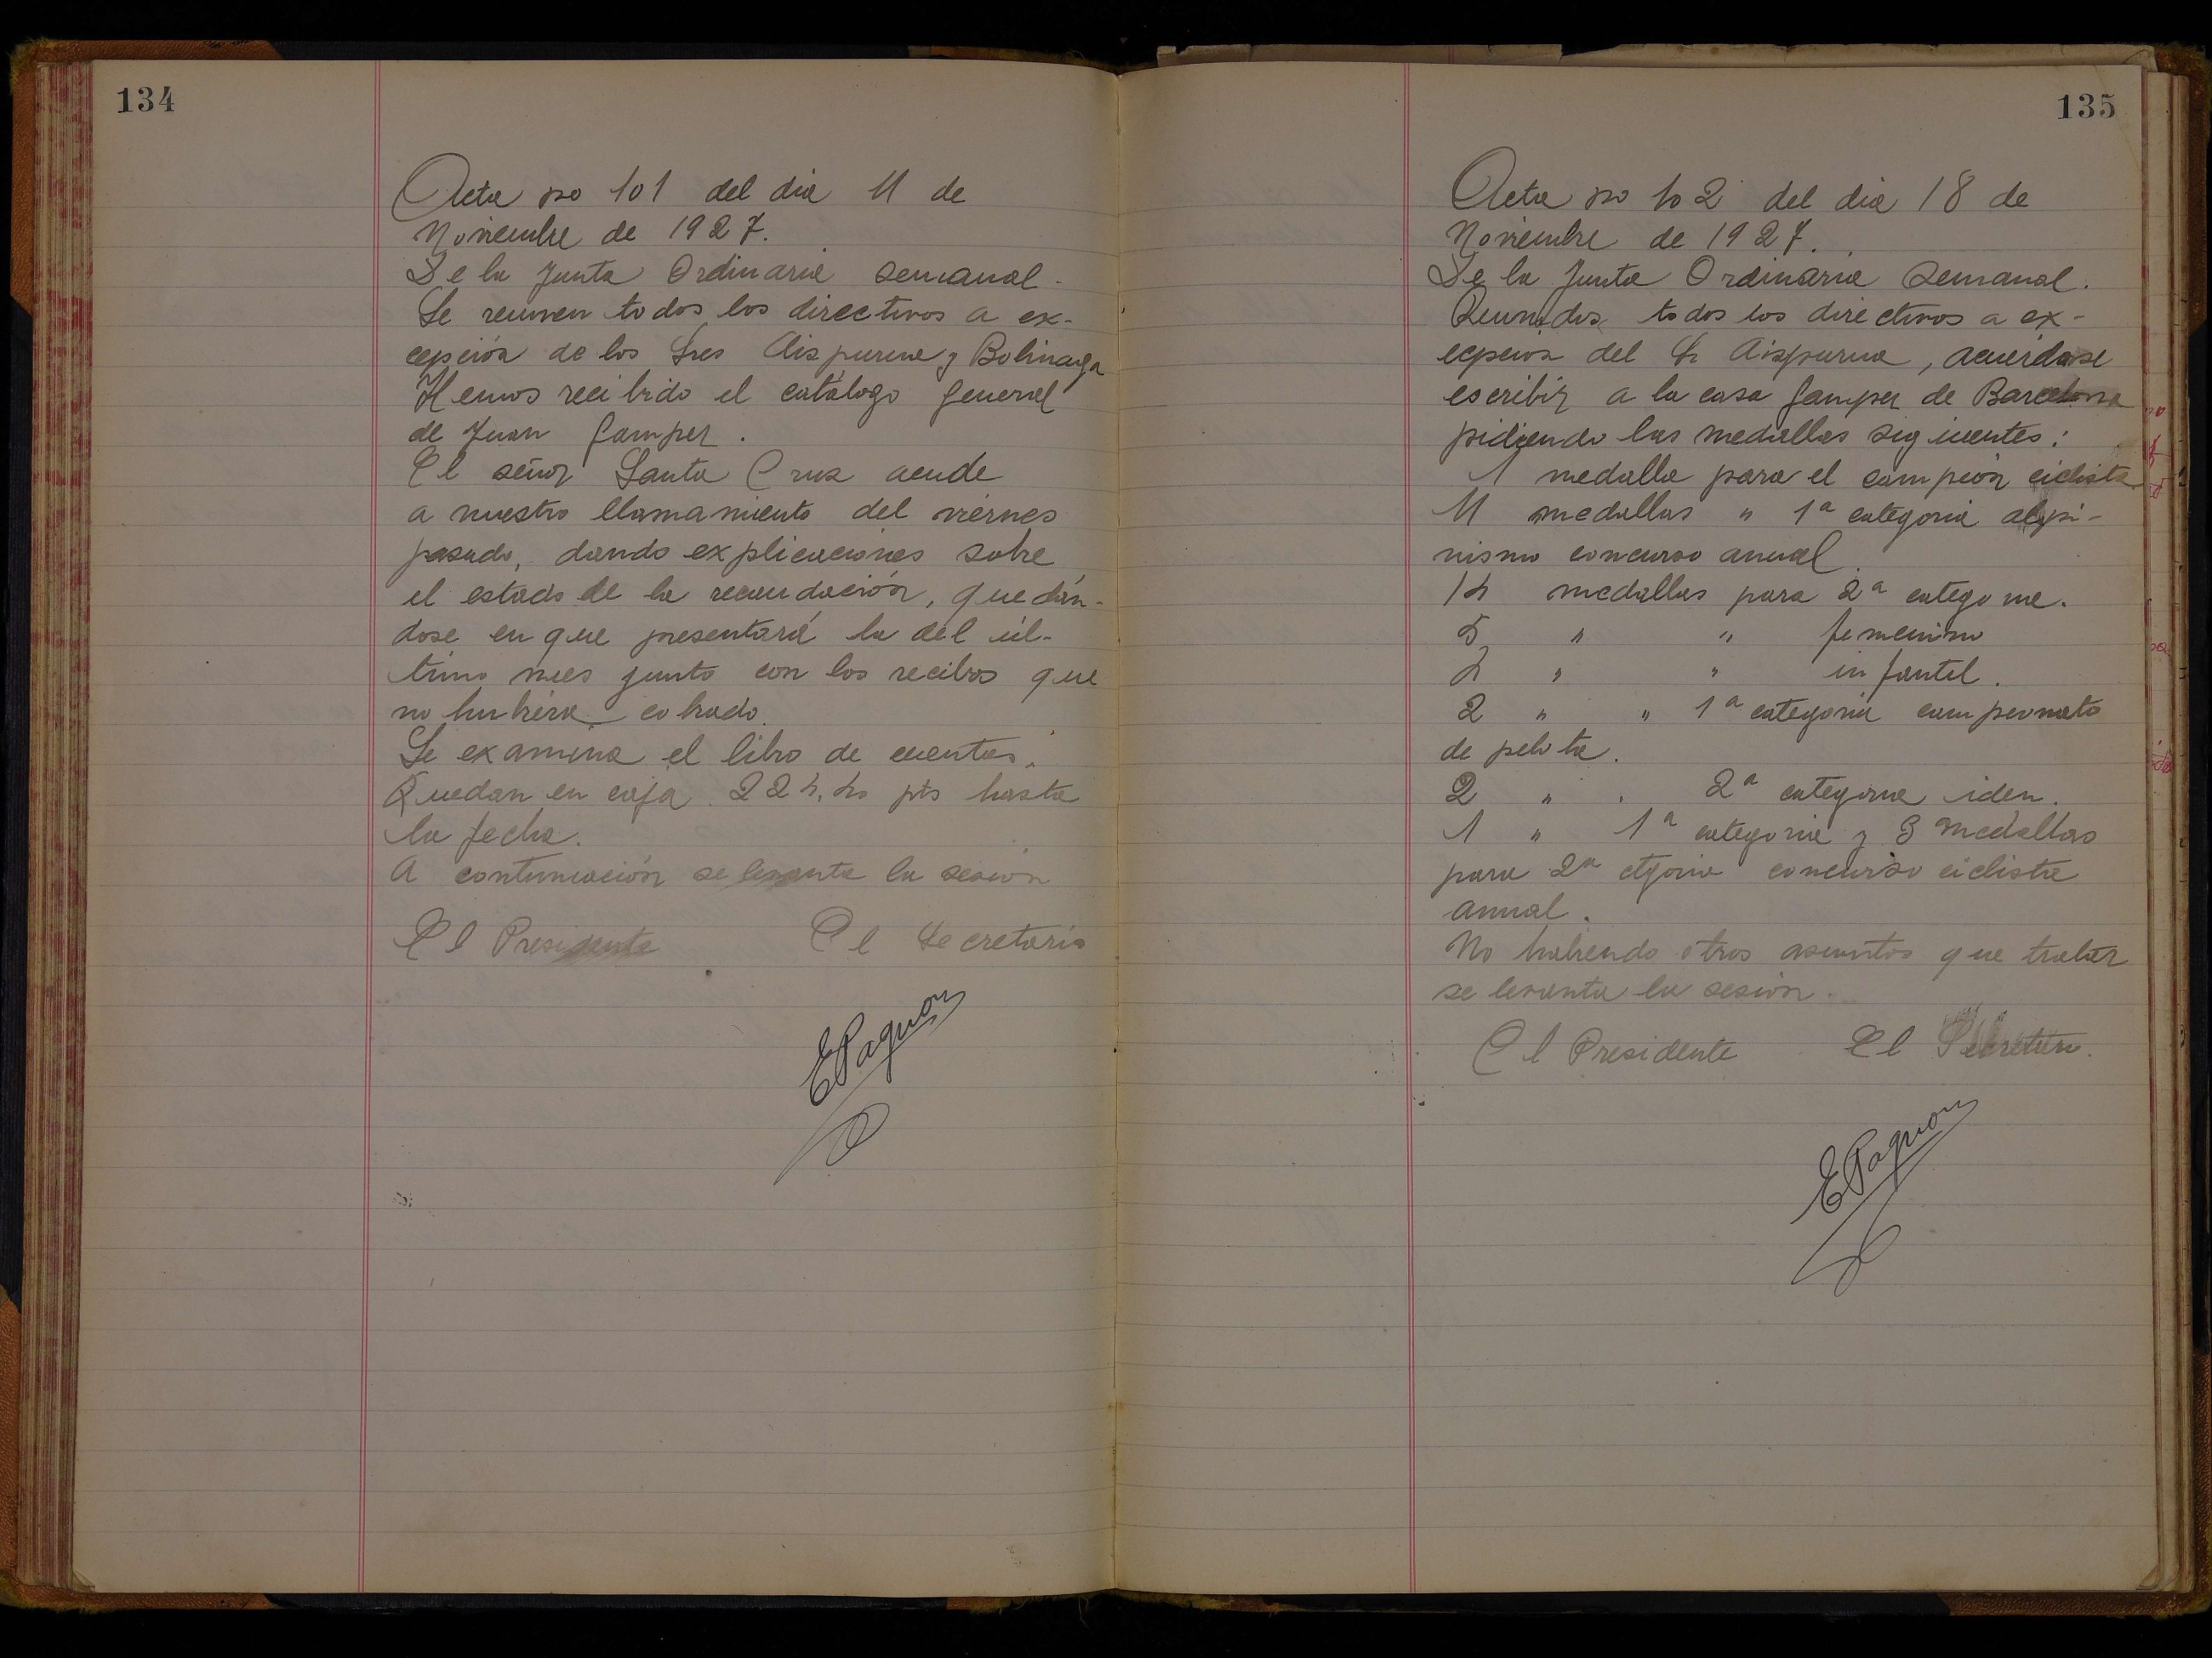 134
Acta no 101 del dia 11 de
Noviembre de 1927.
De la Junta Ordinaria semanal.
Se reunen todos los directivos a ex-
cepción de los Sres Aispurua y Bolinaga
Hemos recibido el catálogo general
de Juan Gamper.
El señor Santa Cruz acude
a nuestro llamamiento del viernes
pasado, dando explicaciones sobre
el estado de la recaudación, quedán-
dose en que presentará la del úl-
timo mes junto con los recibos que
no hubiera cobrado.
Se examina el libro de cuentas.
Quedan en caja 224,40 pts hasta
la fecha.
A continuación se levanta la sesión
El Presidente El Secretario
EPagnon
135
Acta no 102 del dia 18 de
Noviembre de 1927.
De la Junta Ordinaria Semanal.
Reunidos todos los directivos a ex-
cepcion del Sr Aispurua, acuérdase
escribir a la casa Gamper de Barcelona
pidiendo las medallas siguientes:
1 medalla para el campeón ciclista
11 medallas " 1ª categoria alpi-
nismo concurso anual.
14 medallas para 2ª categoria.
5 " " femenino
4 " " infantil.
2 " " 1ª categoria campeonato
de pelota.
2 " " 2ª categoria iden.
1 " 1ª categoria y 3 medallas
para 2ª ctgoria concurso ciclista
anual.
No habiendo otros asuntos que tratar
se levanta la sesión.
El Presidente El Secretario.
EPagnon